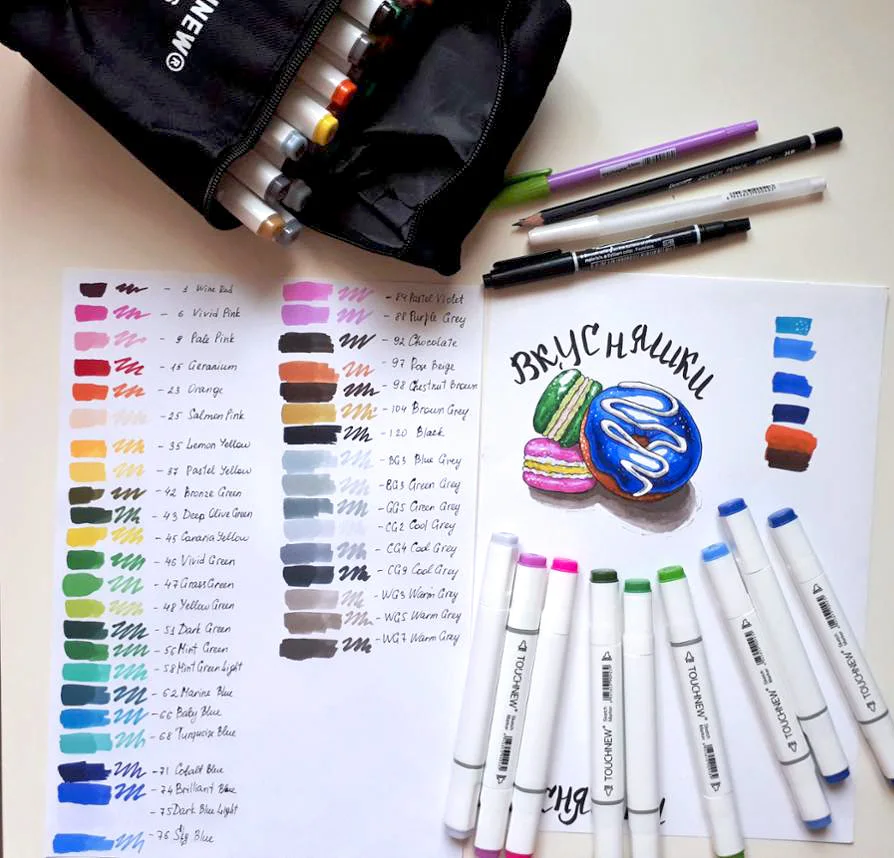 HNEW®
- 1 Wine Red
- 6 Vivid Pink
- 9 Pale Pink
- 15 Geranium
- 23 Orange
- 25 Salmon Pink
- 35 Lemon Yellow
- 37 Pastel Yellow
- 42 Bronze Green
- 43 Deep Olive Green
- 45 Canaria Yellow
- 46 Vivid Green
- 47 Grass Green
- 48 Yellow Green
- 51 Dark Green
- 56 Mint Green
- 58 Mint Green Light
- 62 Marine Blue
- 66 Baby Blue
- 68 Turquoise Blue
- 71 Cobalt Blue
- 74 Brilliant Blue
- 75 Dark Blue Light
- 76 Sky Blue
- 84 Pastel Violet
- 88 Purple Grey
- 92 Chocolate
- 97 Rose Beige
- 98 Chestnut Brown
- 104 Brown Grey
- 120 Black
- BG3 Blue Grey
- BG3 Green Grey
- GG5 Green Grey
- CG2 Cool Grey
- CG4 Cool Grey
- CG9 Cool Grey
- WG3 Warm Grey
- WG5 Warm Grey
- WG7 Warm Grey
вкусняшки
TOUCHNEW® Sketch Marker
TOUCHNEW® Sketch Marker
TOUCHNEW® Sketch Marker
TOUCHNEW® Sketch Marker
TOUCHNEW® Sketch Marker